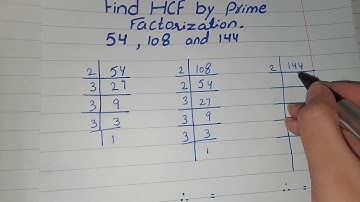 Find HCF by Prime
Factorization.
54, 108 and 144
2 54
3 27
3 9
3 3
1
2 108
2 54
3 27
3 9
3 3
1
2 144
∴ =
∴ =